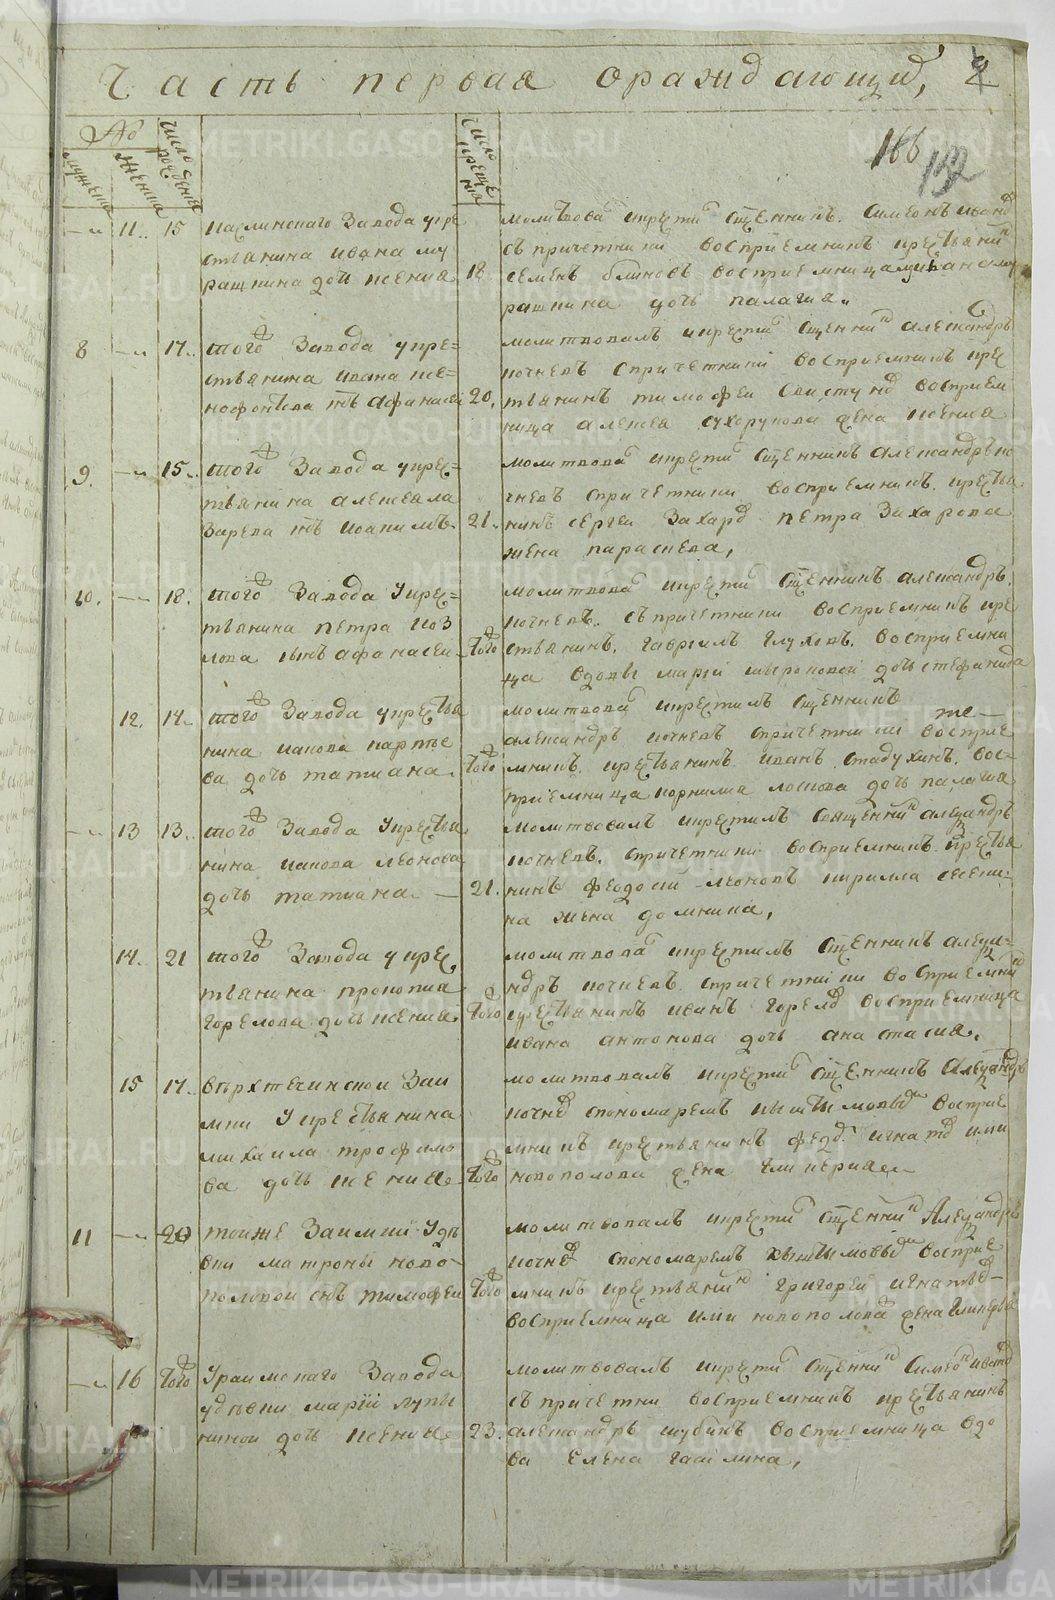 Часть первая ораждающих, 2
166
132
№
мужеска
женска
число рождения
число крещения
— 11. 15
каслинскаго Завода укре
стьянина ивана му
рашкина дочь ксения
18
молитвова и крести Сщенникъ Симеонъ
съ причетники восприемникъ крестьянин
семенъ блиновъ восприемница ивана му
рашкина дочь палагия.
8 — 17.
того Завода укре=
стьянина ивана ксе=
нофонтова снъ афанасеи
20.
молитвовалъ и крести Сщенник александръ
кочневъ с причетники восприемникъ крес
тьянинъ тимофеи восприем
ница алексея сухорукова жена ксения
9. — 15.
того Завода укрес=
тьянина алексея ла
зарева снъ иоакимъ.
21.
молитвова и крести Сщенникъ александръ ко
чневъ с причетники восприемникъ. крестья
нинъ сергеи Захаров петра Захарова
жена параскева,
10. — 18.
того Завода Укрес=
тьянина петра коз
лова сынъ афанасеи
того
молитвова и крести Сщенникъ александръ.
кочневъ. съ причетники восприемникъ кре
стьянинъ. гаврилъ глуховъ. восприемни
ца вдовы марии мироновой дочь стефанида
12. 14.
того Завода укрестья
нина иакова карпъе
ва дочь татиана.
того
молитвова и крестилъ Сщенникъ
александръ кочневъ с причетники восприе
мникъ. крестьянинъ. иванъ. стадухинъ. вос=
приемница корнилия лоскова дочь палагия
— 13 13.
того Завода Укрестья
нина иакова леонова
дочь татиана —
21.
молитвовалъ и крестилъ священник александръ
кочневъ. с причетники восприемникъ. крестья
нинъ феодосий леоновъ кирилла
на жена домника,
14. 21
того Завода укрес
тьянина прокопия
горелова дочь ксения.
того
молитвова и крестилъ Сщенникъ алекса=
ндръ кочневъ. с причетники восприемник
крестьянинъ иванъ горелов восприемница
ивана антонова дочь анастасия.
15 17.
верхтечинской Заи
мки Укрестьянина
михаила трофимо
ва дочь ксения.
того
молитвовалъ и крести Сщенникъ александръ
кочнев спономаремъ кыштымовым восприе
мникъ крестьянинъ федо. игнатов
новополова жена гликерия.
11 — 20
тоиже Заимки Увдо
вки матроны ново=
половой снъ тимофеи
того
молитвовалъ и крести Сщенник Александръ
кочнев спономаремъ кыштымовым восприе
мникъ крестьянинъ григореи игнатьев
восприемница новополова жена гликерья
— 16 того
Уфаимскаго Завода
Увдовки марии лупы
ниной дочь ксения.
23.
молитвовалъ и крести Сщенник Симеон иванов
съ причетни восприемникъ крестьянинъ
александръ шубинъ восприемница вдо
ва елена